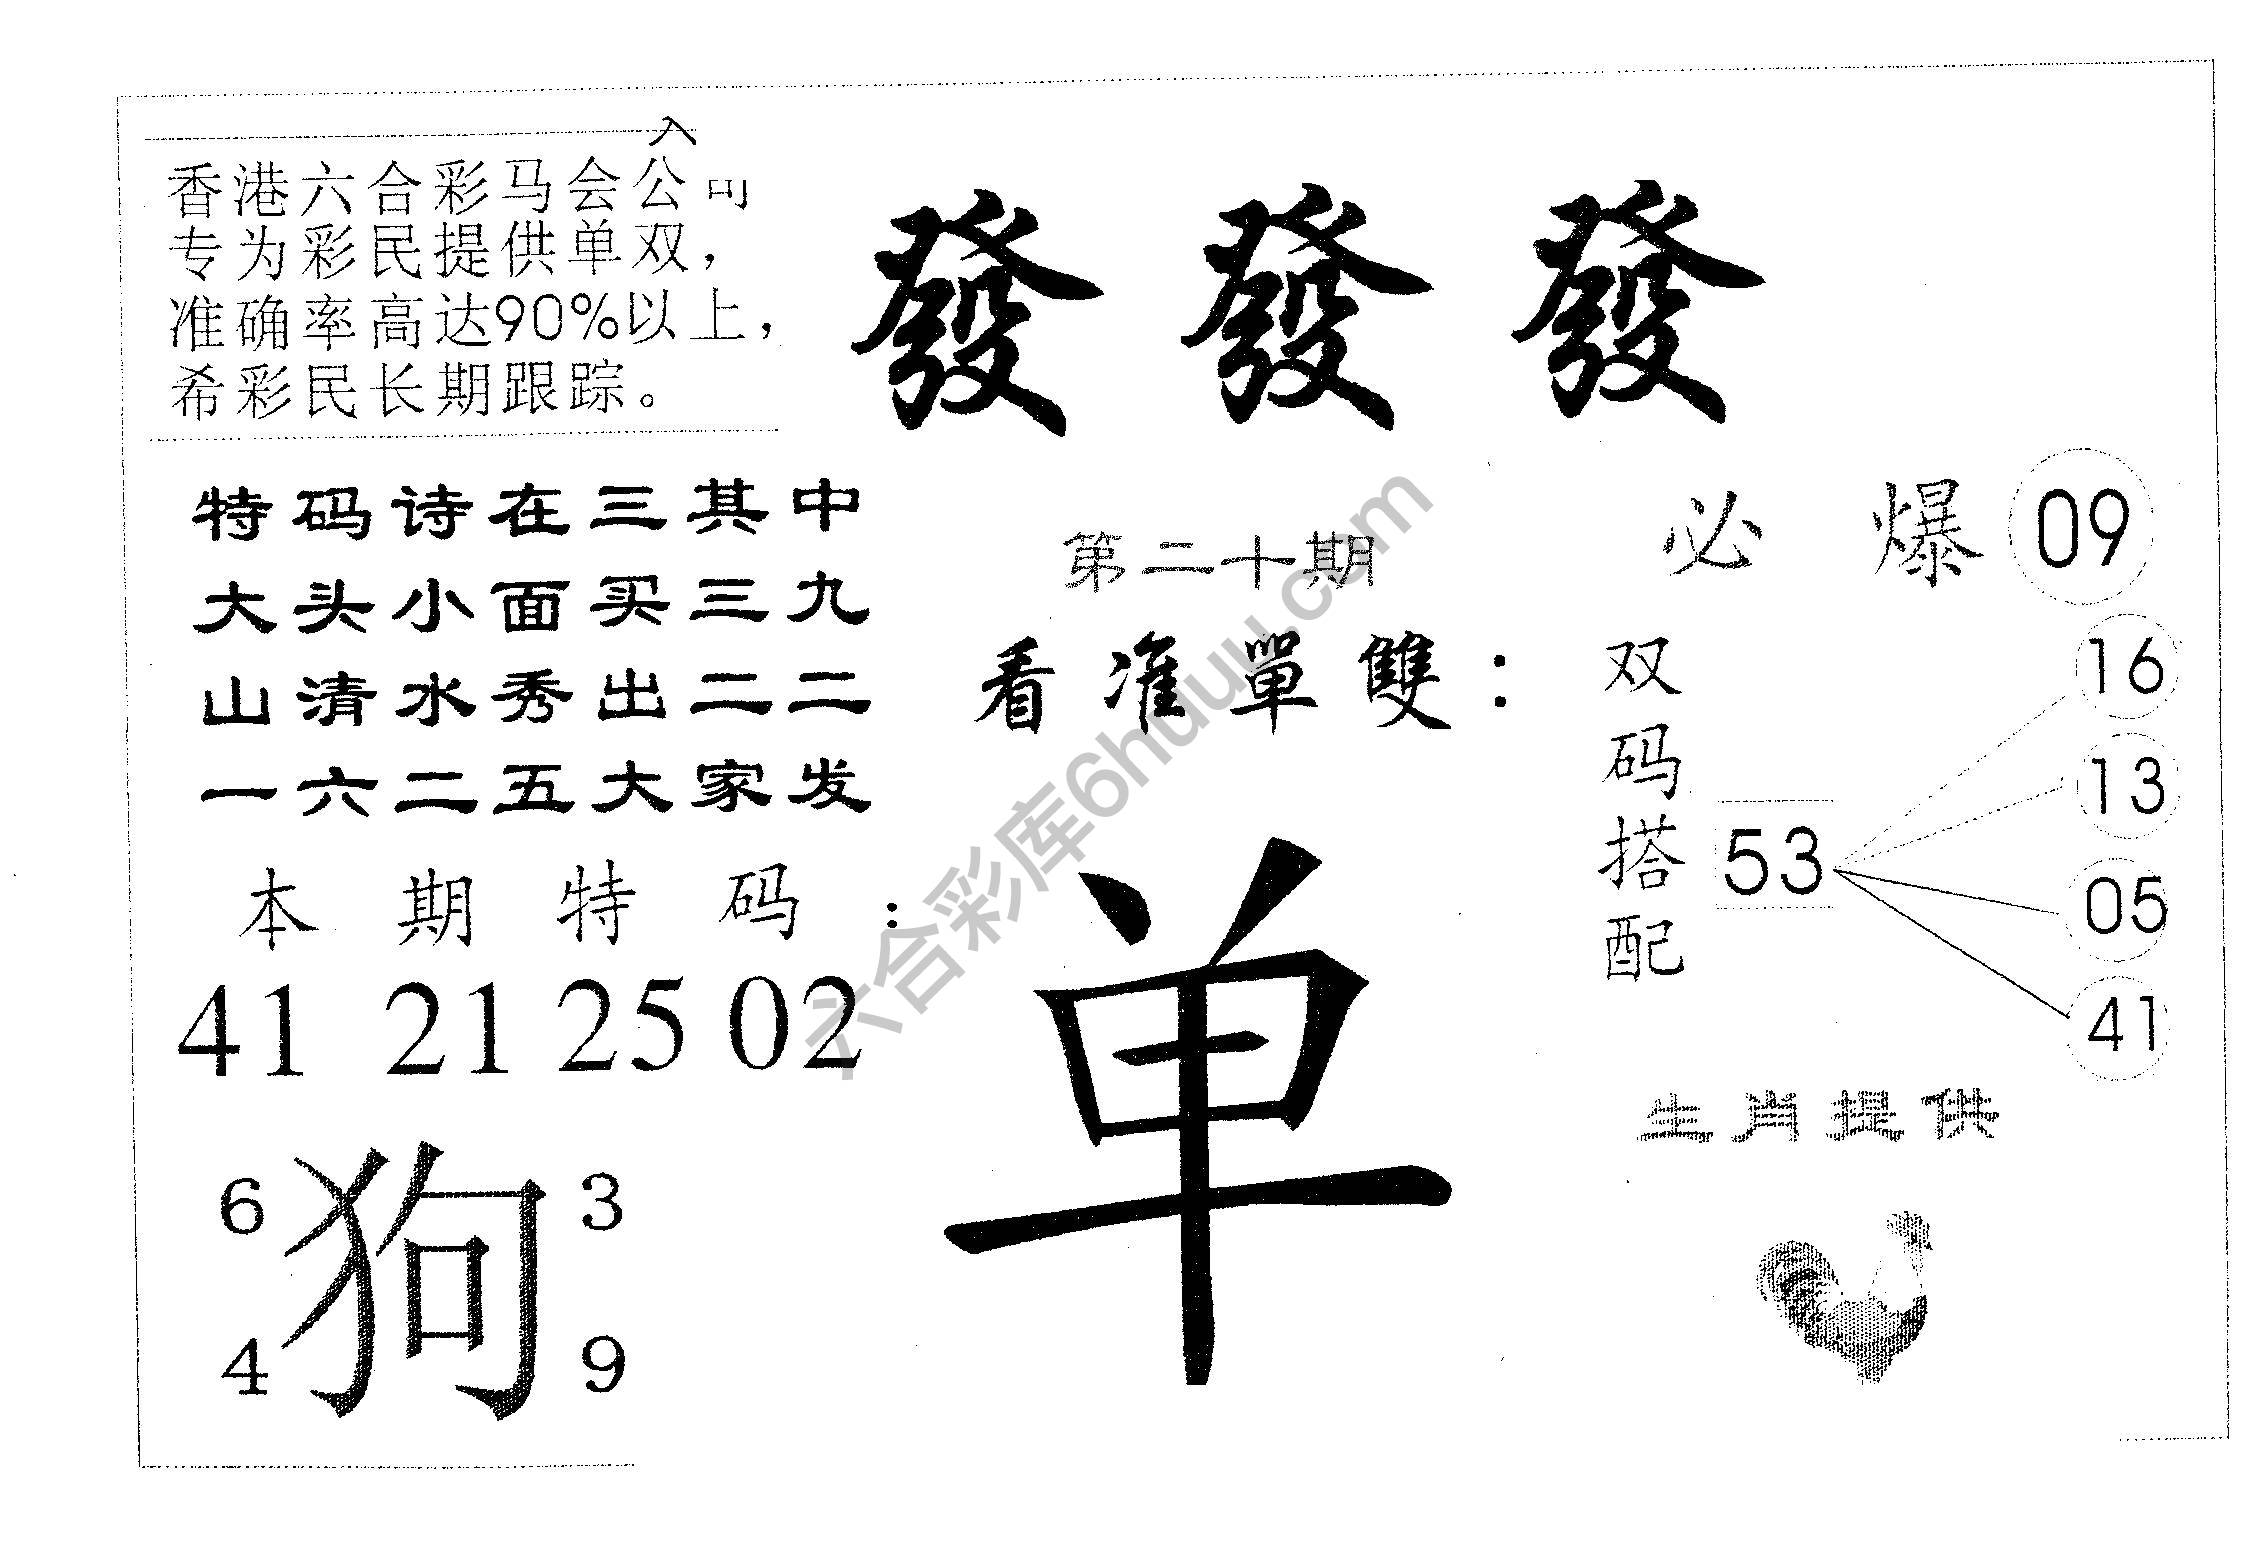 香港六合彩马会公司
专为彩民提供单双，
准确率高达90%以上，
希彩民长期跟踪。
發 發 發
特码诗在三其中
大头小面买三九
山清水秀出二二
一六二五大家发
本期特码：
41 21 25 02
6 狗 3
4 9
第二十期
看准單雙：
单
必爆 09
双码搭配
53
16
13
05
41
生肖提供
六合彩库6huuu.com